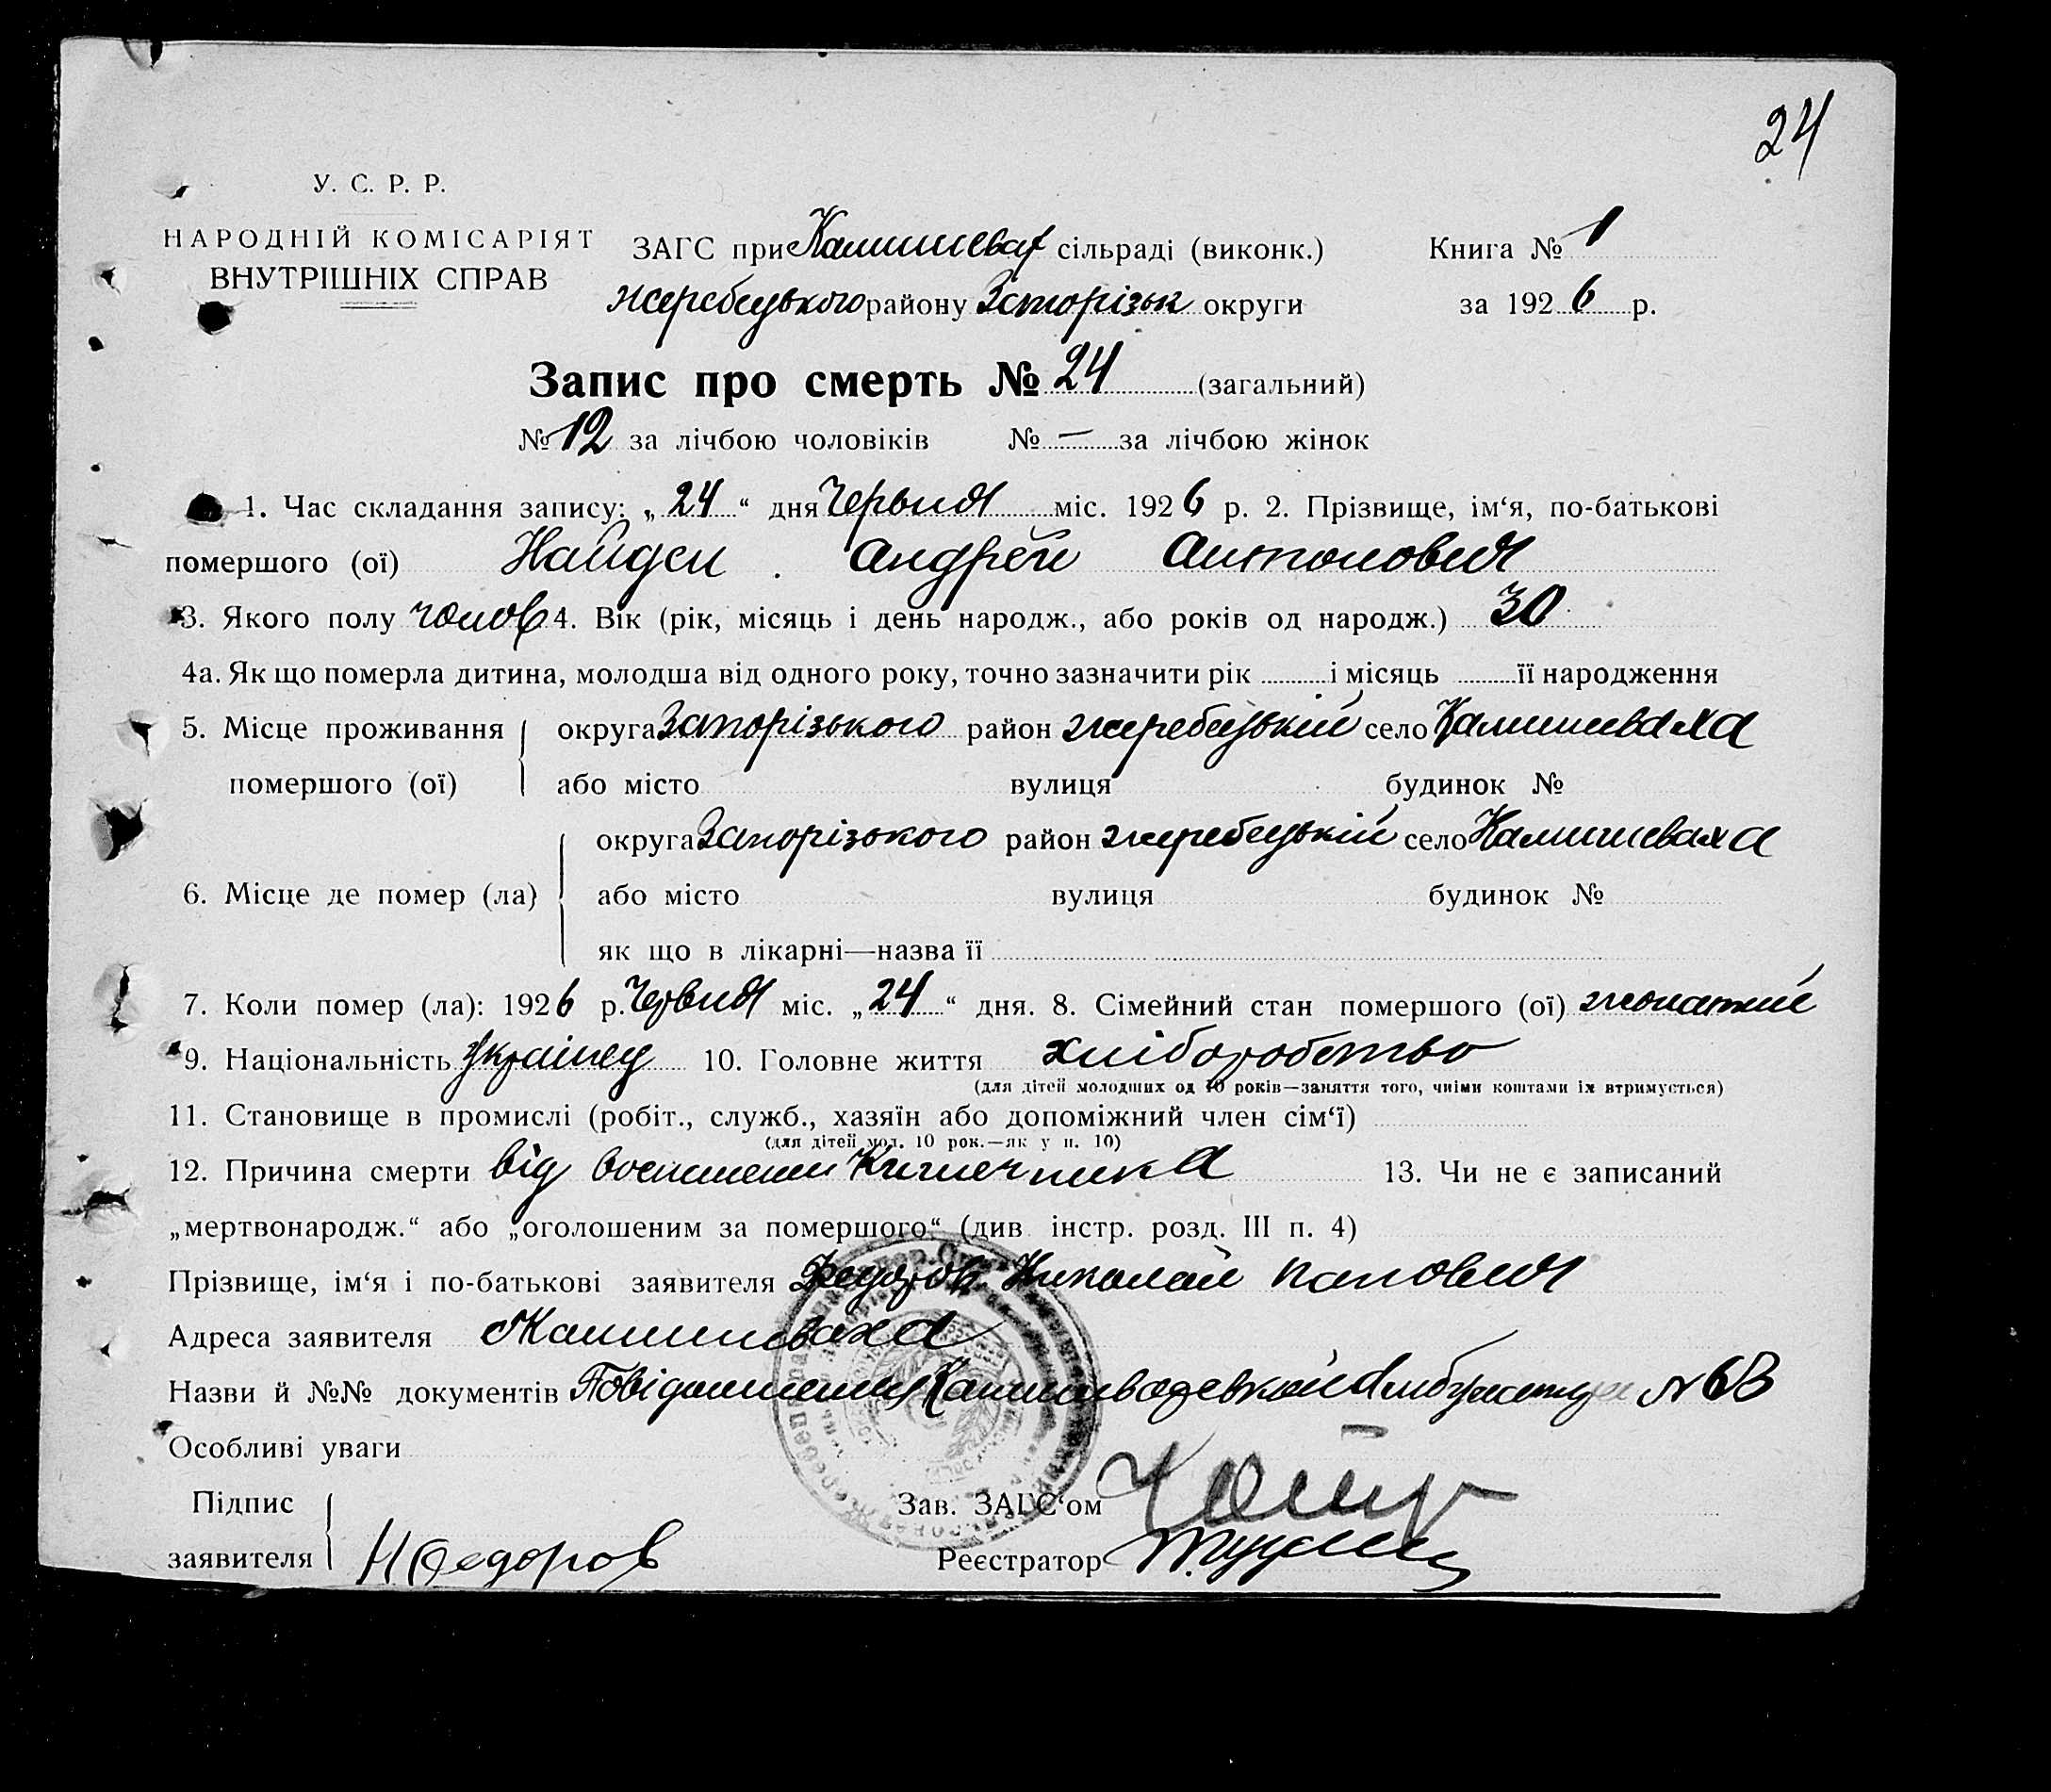 24
У. С. Р. Р.
НАРОДНІЙ КОМІСАРІЯТ
ВНУТРІШНІХ СПРАВ
ЗАГС при Камишеваг сільраді (виконк.) Книга № 1
Жеребецького району Запорізьк округи за 1926 р.
Запис про смерть № 24 (загальний)
№ 12 за лічбою чоловіків № — за лічбою жінок
1. Час складання запису: „24“ дня Червня міс. 1926 р. 2. Прізвище, ім‘я, по-батькові
помершого (ої) Найден. Андрей Антонович
3. Якого полу чолов 4. Вік (рік, місяць і день народж., або років од народж.) 30
4а. Як що померла дитина, молодша від одного року, точно зазначити рік і місяць її народження
5. Місце проживання округа Запорізького район жеребецькій село Камишеваха
помершого (ої) або місто вулиця будинок №
округа Запорізького район жеребецькій село Камишеваха
6. Місце де помер (ла) або місто вулиця будинок №
як що в лікарні—назва її
7. Коли помер (ла): 1926 р. Червня міс. „24“ дня. 8. Сімейний стан помершого (ої) жонатий
9. Національність Українец 10. Головне життя хліборобство
(для дітей молодших од 10 років—заняття того, чиїми коштами їх втримується)
11. Становище в промислі (робіт., служб., хазяїн або допоміжний член сім‘ї)
(для дітей мол. 10 рок.—як у п. 10)
12. Причина смерти від Кишечника 13. Чи не є записаний
„мертвонародж.“ або „оголошеним за помершого“ (див. інстр. розд. III п. 4)
Прізвище, ім‘я і по-батькові заявителя Федоров Николай
Адреса заявителя Камишеваха
Назви й №№ документів № 68
Особливі уваги
Підпис Зав. ЗАГС‘ом
заявителя Н Федоров Реєстратор